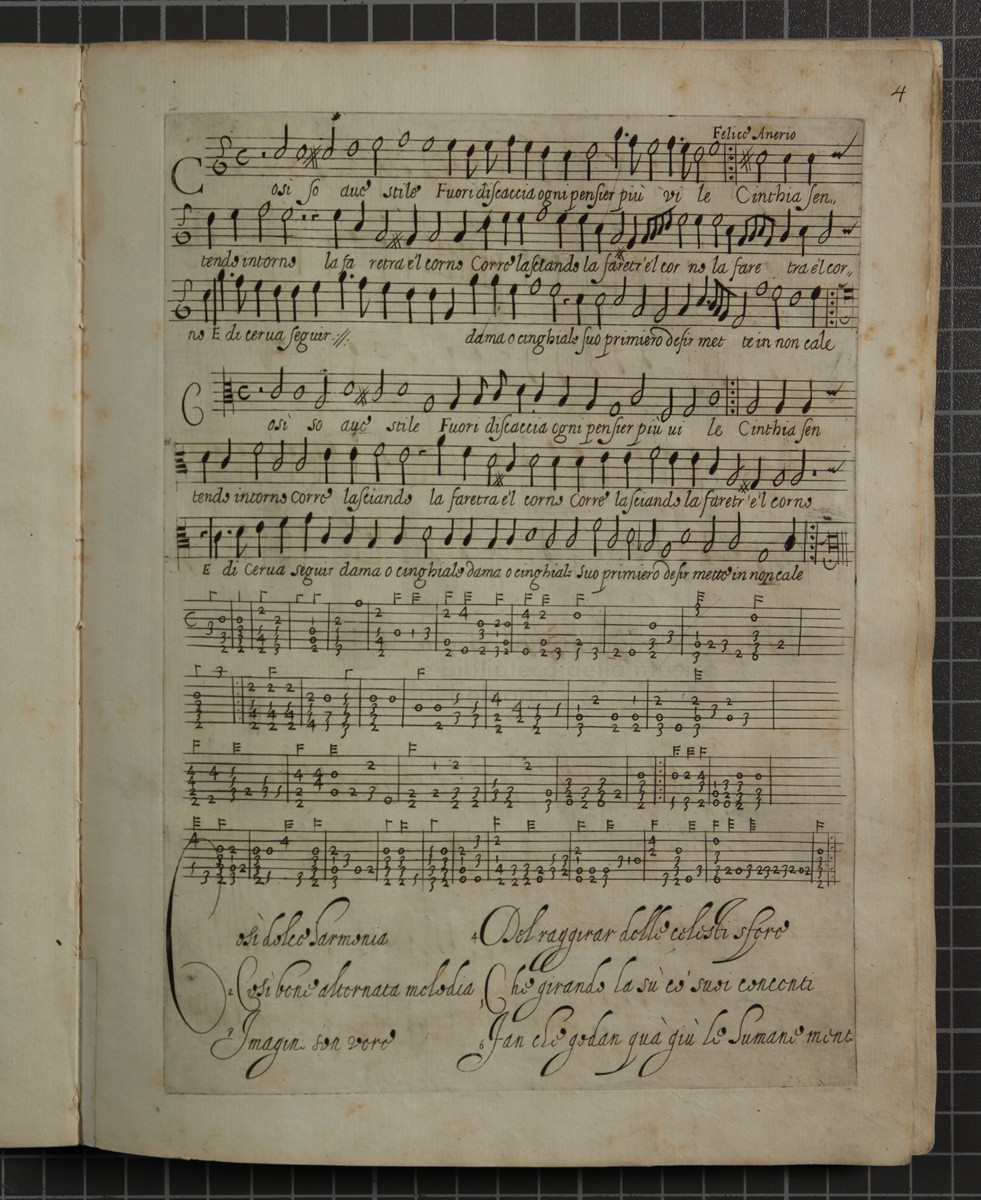 4
Felice Anerio
Cosi so aue stile Fuori discaccia ogni pensier più vi le Cinthia sen„
tendo intorno la fa retra e'l corno Corre lasciando la faretr' e'l cor no la fare tra e'l cor„
no E di cerua seguir :// dama o cinghiale suo primiero desir met te in non cale
Cosi so aue stile Fuori discaccia ogni pensier più ui le Cinthia sen
tendo intorno Corre lasciando la faretra e'l corno Corre lasciando la faretr' e'l corno
E di Cerua seguir dama o cinghiale dama o cinghiale suo primiero desir mette in non cale
Cosi dolce harmonia
2 Cosi bene alternata melodia
3 Imagin son vere
4 Del raggirar delle celesti sfere
5 Che girando la sù co' suoi concenti
6 Fan che godan quà giù le humane ment